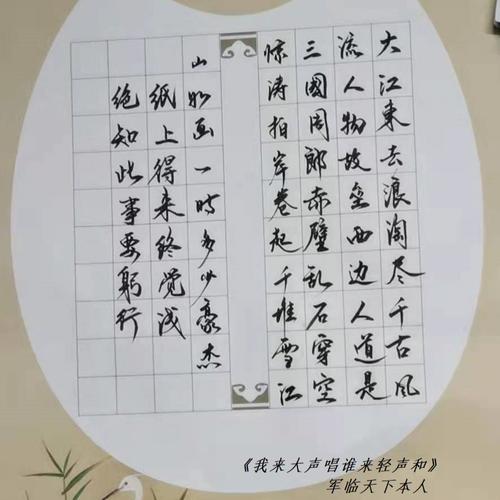 大江東去浪淘尽千古風
流人物故垒西边人道是
三國周郎赤壁乱石穿空
惊涛拍岸卷起千堆雪江
山如画一时多少豪杰
纸上得来终觉浅
绝知此事要躬行
《我来大声唱谁来轻声和》
军临天下本人